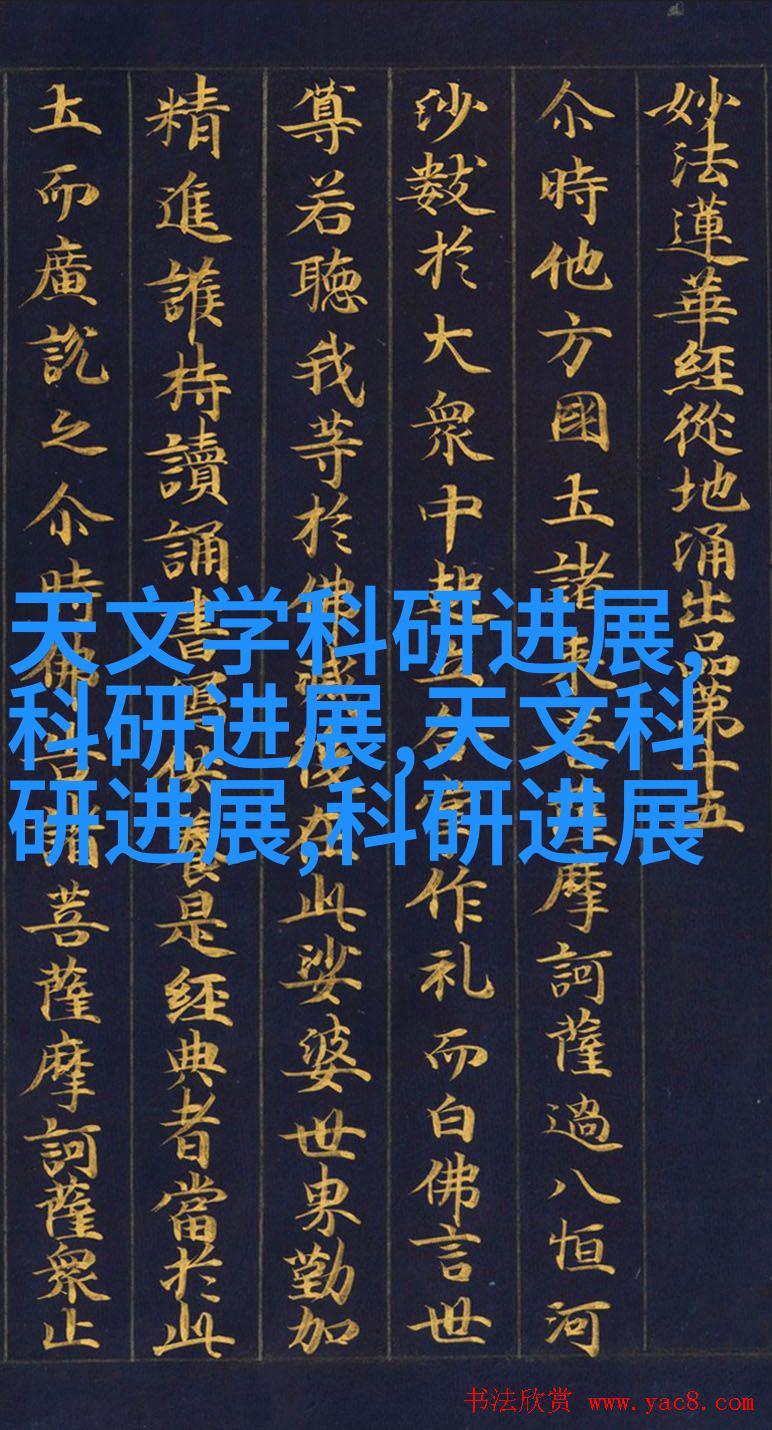 妙法蓮華經從地涌出品第十五
尒時他方國土諸來菩薩摩訶薩過八恒河
沙數於大衆中起立合掌作礼而白佛言世
尊若聴我等於佛滅後在此娑婆世界勤加
精進護持讀誦書寫供養是經典者當於此
土而廣説之尒時佛告諸菩薩摩訶薩衆止
天文学科研进展,
科研进展,天文科
研进展,科研进展
书法欣赏 www.yac8.com